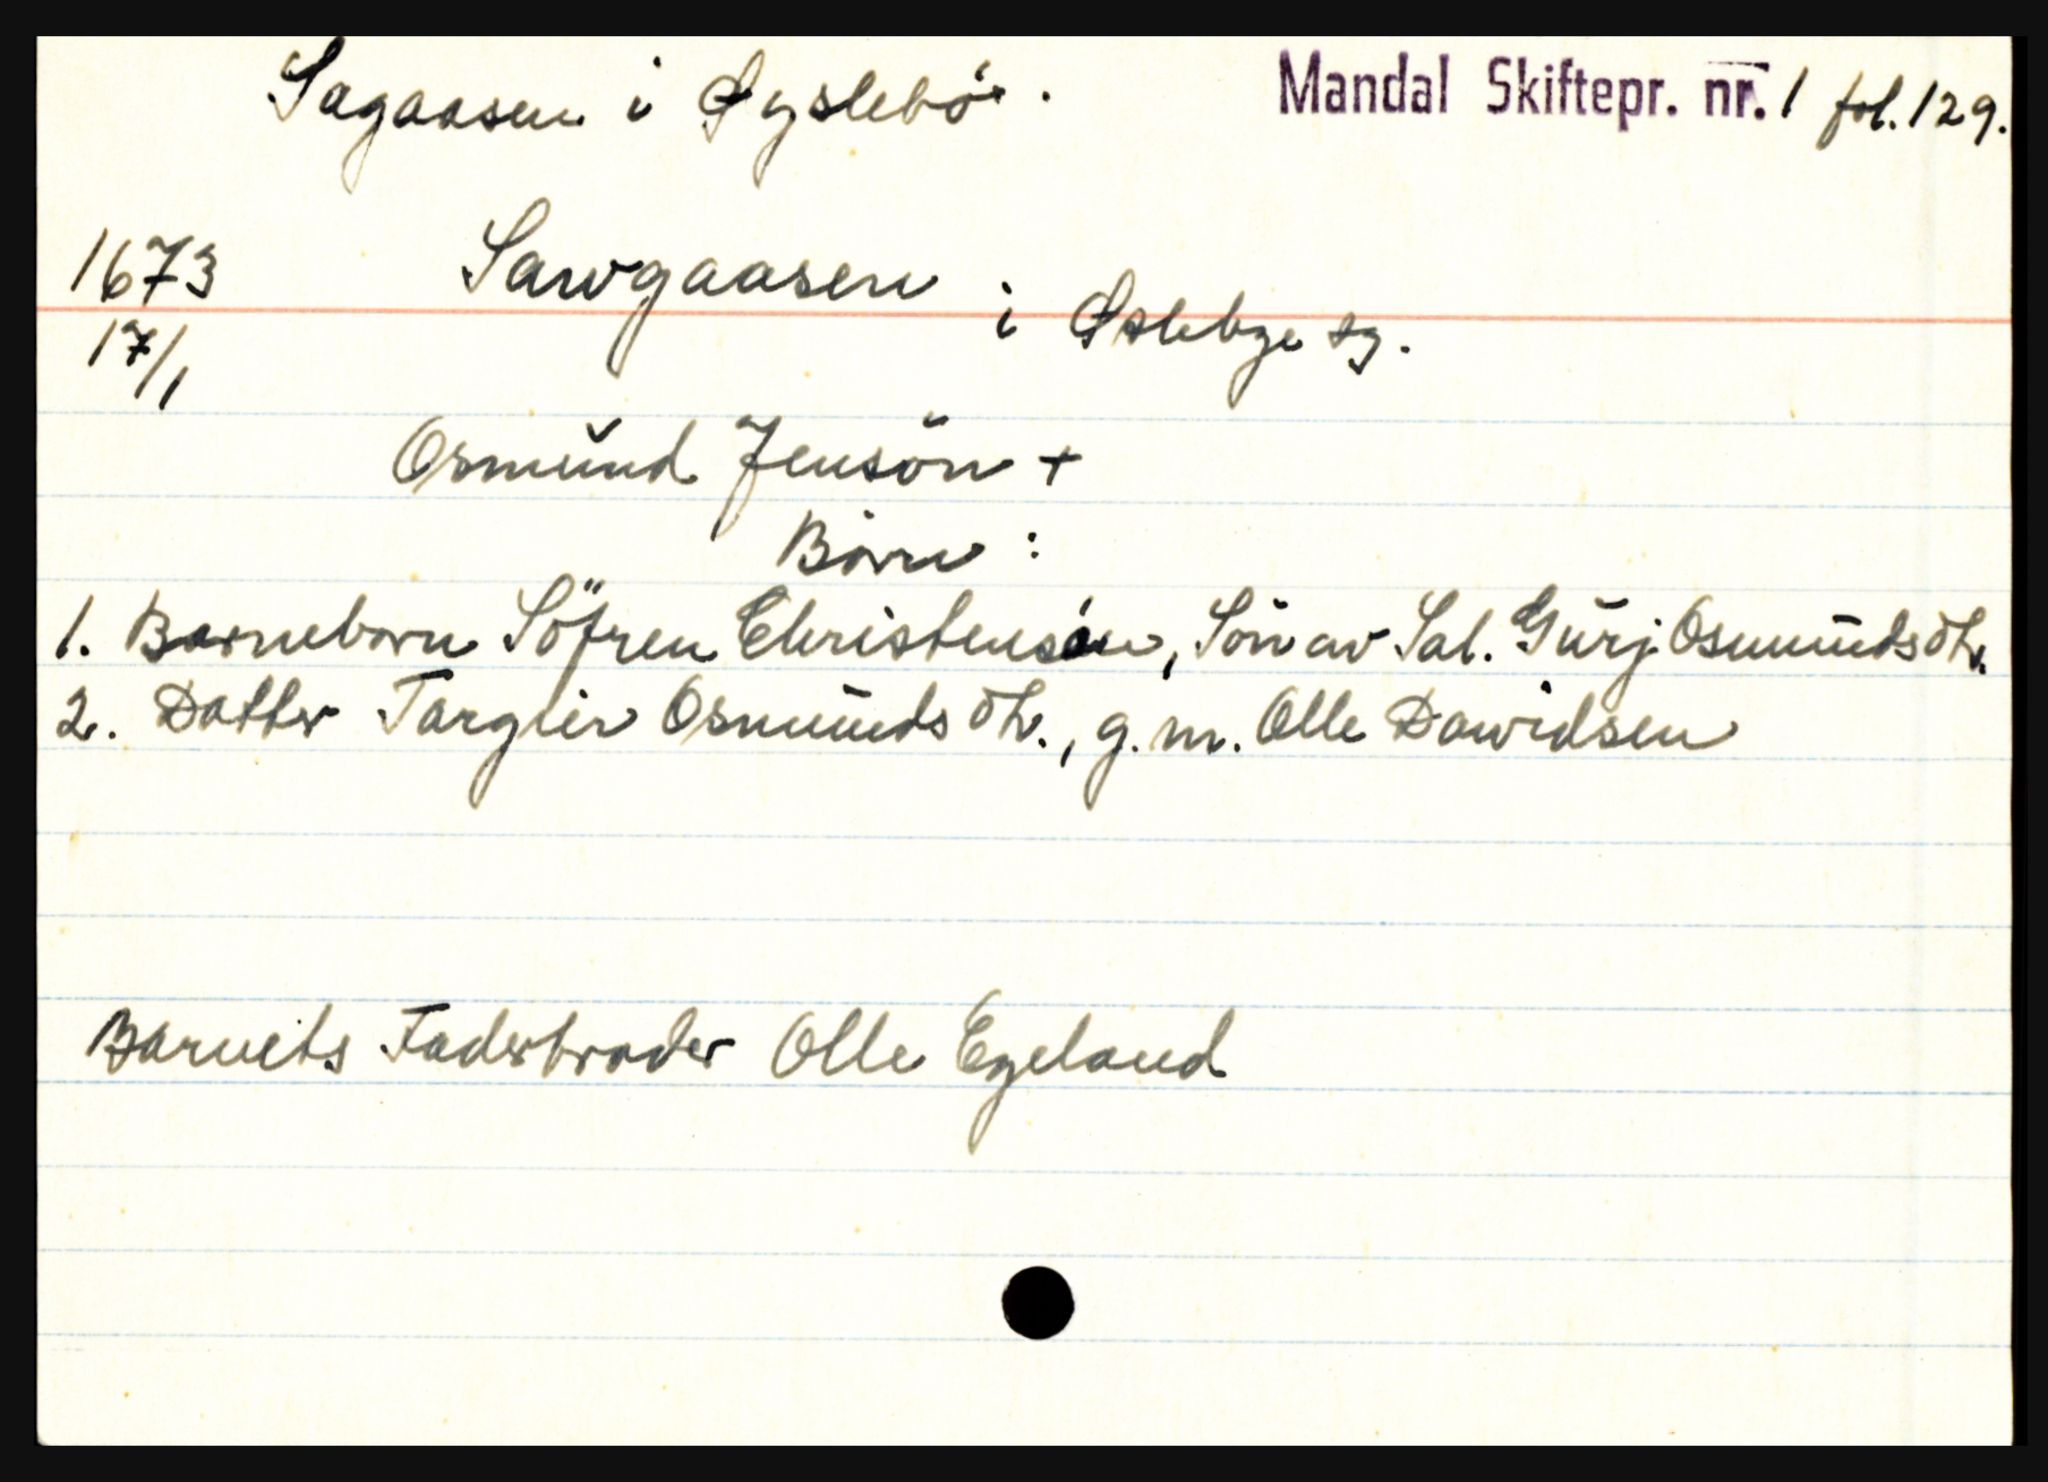 Sagaasen i Øyslebö. Mandal Skiftepr. nr. 1 fol. 129.
1673 Sawgaasen i Øslebye sg.
17/1
Osmŭnd Jensön +
Börn:
1. Barneborn Söfren Christensön, Sön av Sal. Gŭrj Osmŭndsdtr.
2. Datter Targier Osmŭndsdtr., g.m. Olle Dawidsen
Barnets Faderbroder Olle Egeland